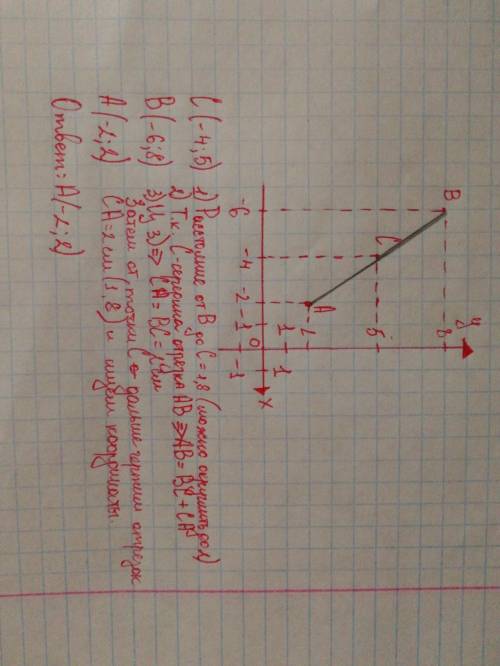 y
B
8
C
5
A
2
1
-6
-4
-2
-1
0
1
x
-1
C (-4; 5)
B (-6; 8)
A (-2; 2)
1) Расстояние от B до C = 1,8 (можно округлить до 2)
2) Т.к. C - середина отрезка AB ⇒ AB = BC + CA
3) ⇒ CA = BC = см
Затем от точки C дальше чертим отрезок
CA = 2 см (1,8) и ищем координаты.
Ответ: A(-2; 2)